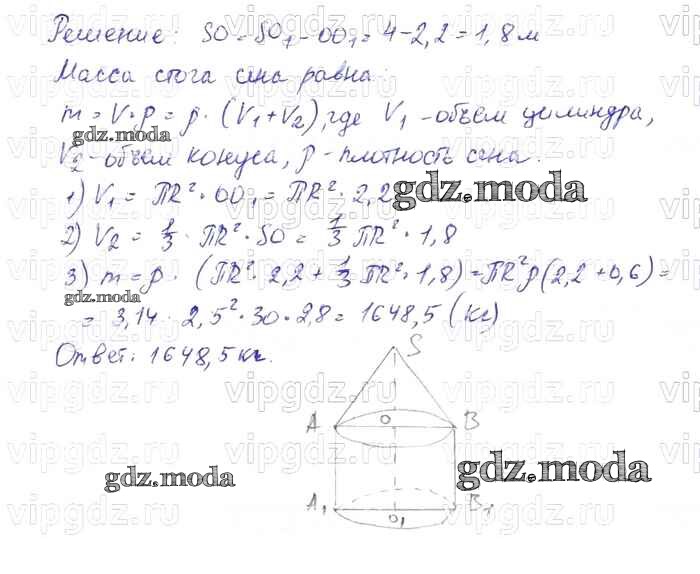 Решение: SO = SO₁ - OO₁ = 4 - 2,2 = 1,8 м
Масса стога сена равна:
m = V · ρ = ρ · (V₁ + V₂), где V₁ - объем цилиндра,
V₂ - объем конуса, ρ - плотность сена.
1) V₁ = πR² · OO₁ = πR² · 2,2
2) V₂ = 1/3 · πR² · SO = 1/3 πR² · 1,8
3) m = ρ · (πR² · 2,2 + 1/3 πR² · 1,8) = πR²ρ(2,2 + 0,6) =
= 3,14 · 2,5² · 30 · 2,8 = 1648,5 (кг)
Ответ: 1648,5 кг.
S
A O B
A₁ O₁ B₁
gdz.moda
gdz.moda
gdz.moda
gdz.moda
gdz.moda
vipgdz.ru